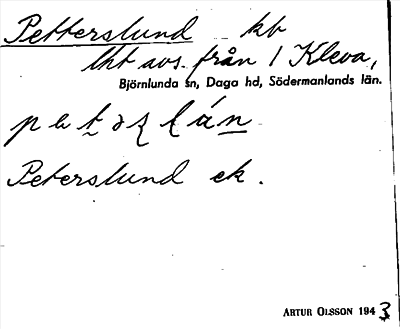 Petterslund kb
lht avs. från 1 Kleva,
Björnlunda sn, Daga hd, Södermanlands län.
Peterslund ek.
ARTUR OLSSON 1943